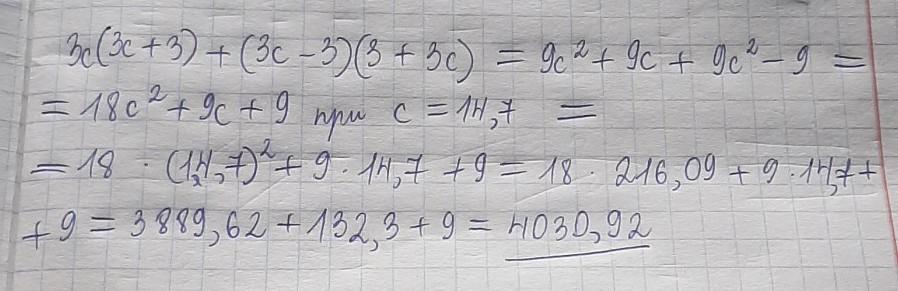 3c(3c+3)+(3c-3)(3+3c) = 9c²+9c+9c²-9 =
= 18c²+9c+9 при c = 14,7 =
= 18 · (14,7)²+9·14,7+9 = 18 · 216,09+9·14,7+
+9 = 3889,62+132,3+9 = 4030,92